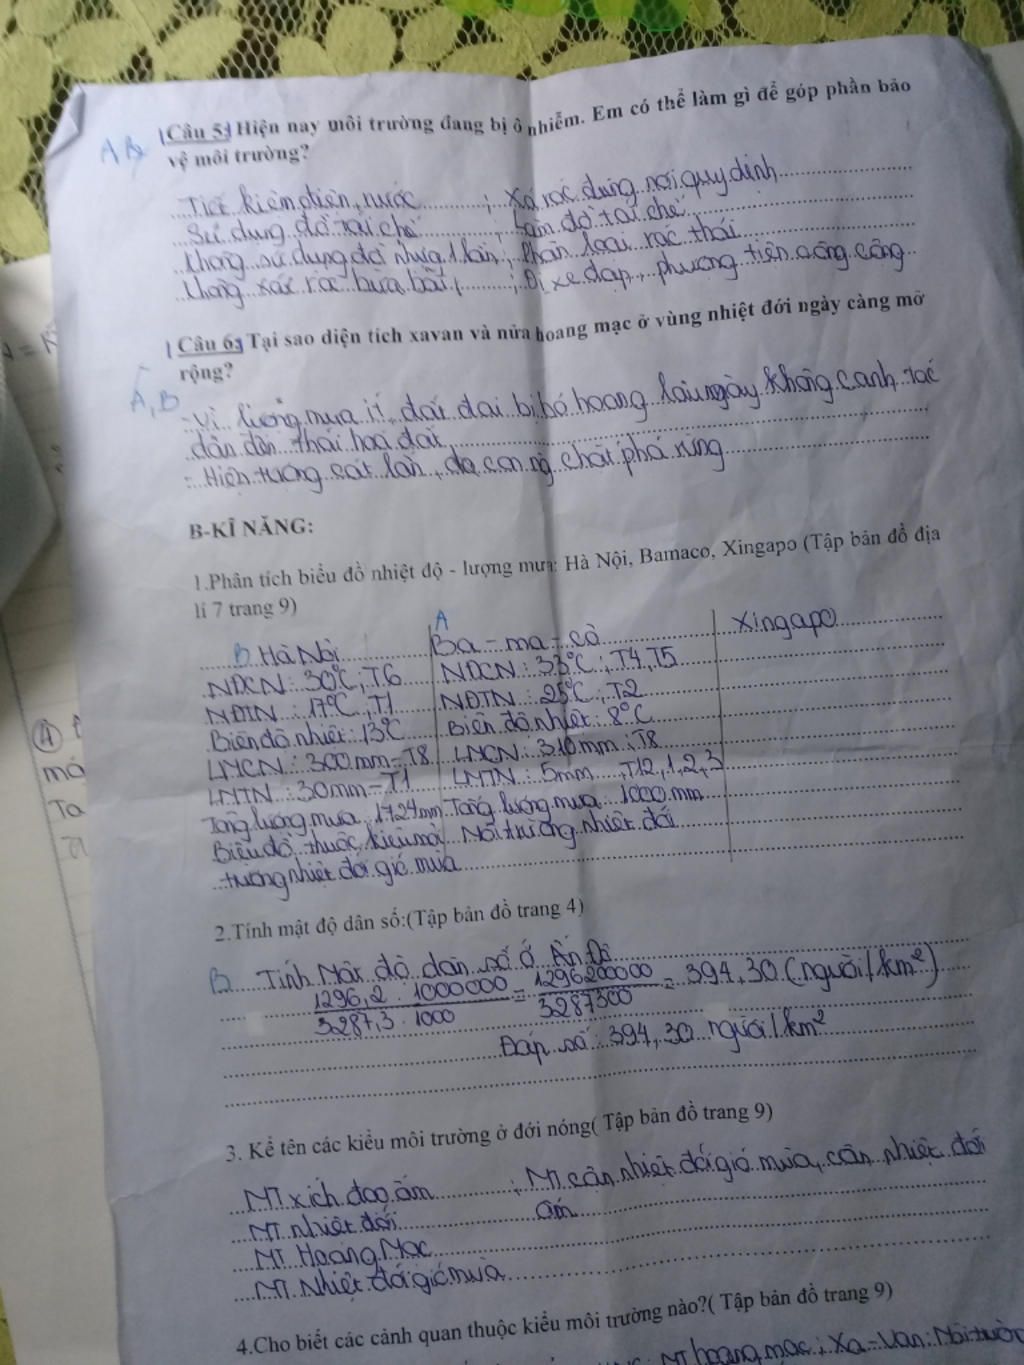 A B Câu 5: Hiện nay môi trường đang bị ô nhiễm. Em có thể làm gì để góp phần bảo
vệ môi trường?
Tiết kiệm điện, nước ; Xả rác đúng nơi quy định
Sử dụng đồ tái chế ; Làm đồ tái chế
Không sử dụng đồ nhựa 1 lần ; Phân loại rác thải
Không xác rác bừa bãi ; Đi xe đạp, phương tiện công cộng
Câu 6: Tại sao diện tích xavan và nửa hoang mạc ở vùng nhiệt đới ngày càng mở
rộng?
A, B
- Vì lượng mưa ít, đất đai bị bỏ hoang lâu ngày không canh tác
dẫn đến thái hoá đất
- Hiện tượng cát lấn, do con ng chặt phá rừng
B-KĨ NĂNG:
1.Phân tích biểu đồ nhiệt độ - lượng mưa: Hà Nội, Bamaco, Xingapo (Tập bản đồ địa
lí 7 trang 9)
B Hà Nội A Ba - ma - cô Xingapo
NĐCN: 30°C, T6 NĐCN: 33°C, T4, T5
NĐTN: 17°C, T1 NĐTN: 25°C, T2
Biên độ nhiệt: 13°C Biên độ nhiệt: 8°C
LMCN: 300mm - T8 LMCN: 310mm, T8
LMTN: 30mm - T1 LMTN: 5mm, T12, 1, 2, 3
Tổng lượng mưa 1724mm Tổng lượng mưa 1000mm
Biểu đồ thuộc kiểu môi Môi trường nhiệt đới
trường nhiệt đới gió mùa
2.Tính mật độ dân số:(Tập bản đồ trang 4)
B Tính Mật độ dân số ở Ấn Độ
1296,2 . 1000000 = 1296200000 = 394,30 (người/km²)
3287,3 . 1000 3287300
Đáp số: 394,30 người/km²
3. Kể tên các kiểu môi trường ở đới nóng( Tập bản đồ trang 9)
MT xích đạo ẩm ; MT cận nhiệt đới gió mùa, cận nhiệt đới
MT nhiệt đới ẩm
MT Hoang Mạc
MT Nhiệt đới gió mùa
4.Cho biết các cảnh quan thuộc kiểu môi trường nào?( Tập bản đồ trang 9)
MT hoang mạc ; Xa-van: Môi trườn